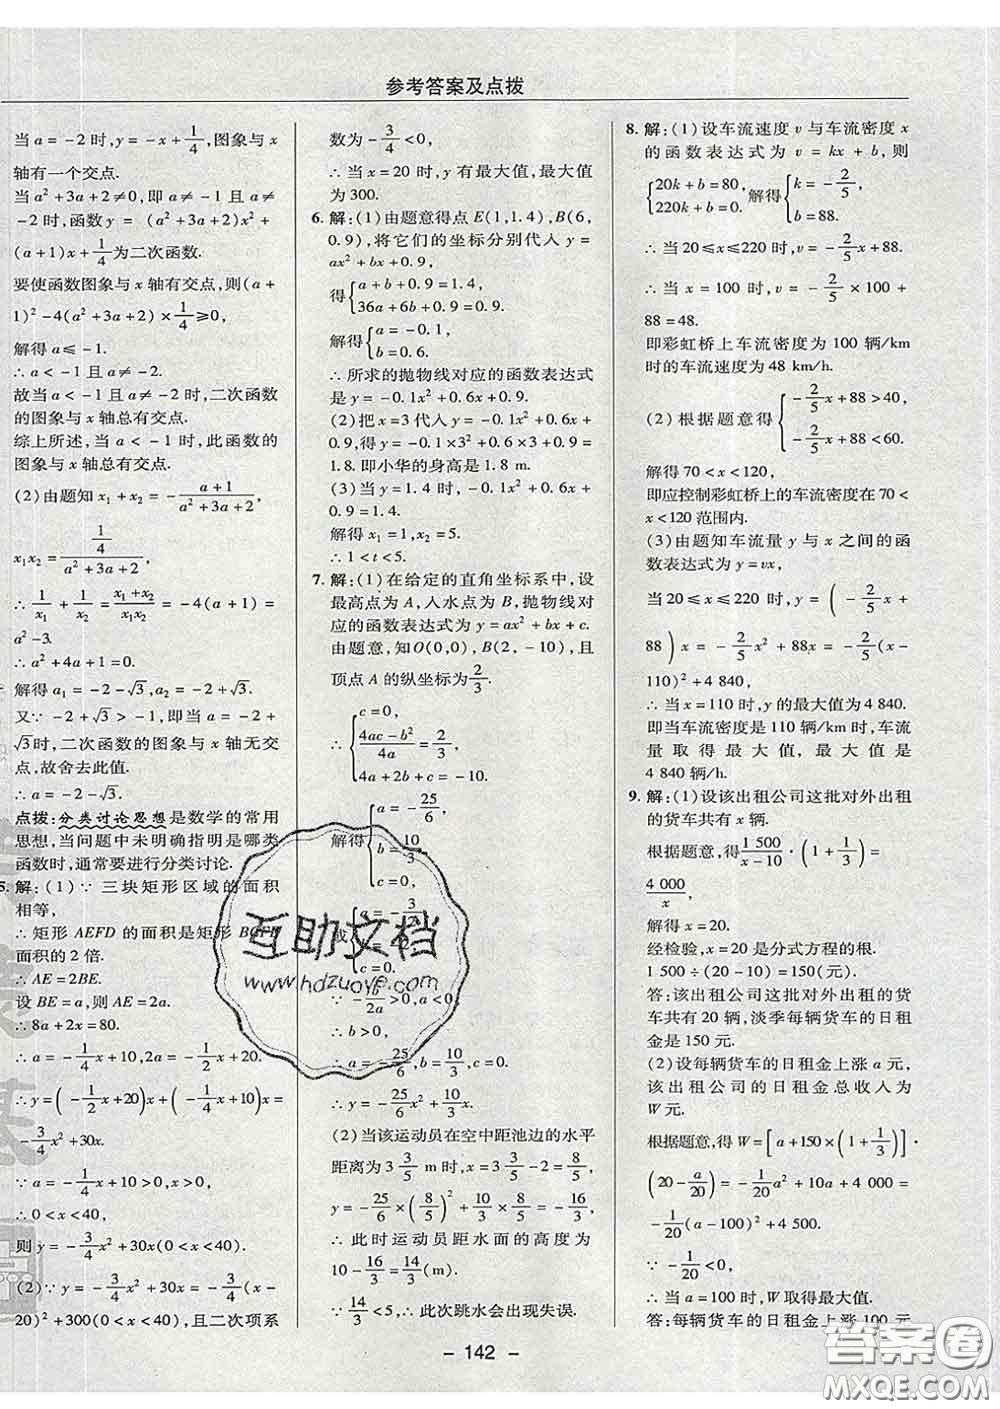 参考答案及点拨
当 a=-2 时,y=-x+1/4,图象与 x
轴有一个交点.
当 a²+3a+2≠0,即 a≠-1 且 a≠
-2 时,函数 y= (a²+3a+2)x²+
(a+1)x+1/4为二次函数.
要使函数图象与 x 轴有交点,则(a+
1)²-4(a²+3a+2)×1/4≥0,
解得 a≤-1.
∴ a<-1 且 a≠-2.
故当 a<-1 且 a≠-2 时,二次函数
的图象与 x 轴总有交点.
综上所述,当 a<-1 时,此函数的
图象与 x 轴总有交点.
(2)由题知 x₁+x₂=-(a+1)/(a²+3a+2),
x₁x₂=(1/4)/(a²+3a+2)
∴ 1/x₁+1/x₂=(x₁+x₂)/(x₁x₂)=-4(a+1)=
a²-3.
∴ a²+4a+1=0.
解得 a₁=-2-√3,a₂=-2+√3.
又∵ -2+√3>-1,即当 a=-2+
√3时,二次函数的图象与 x 轴无交
点,故舍去此值.
∴ a=-2-√3.
点拨:分类讨论思想是数学的常用
思想,当问题中未明确指明是哪类
函数时,通常要进行分类讨论.
5. 解:(1)∵ 三块矩形区域的面积
相等,
∴ 矩形 AEFD 的面积是矩形 BCFE
面积的 2 倍.
∴ AE=2BE.
设 BE=a,则 AE=2a.
∴ 8a+2x=80.
∴ a=-1/4x+10,2a=-1/2x+20.
∴ y=(-1/2x+20)x+(-1/4x+10)x=
-3/4x²+30x.
∵ a=-1/4x+10>0,
∴ 0<x<40,
则 y=-3/4x²+30x(0<x<40).
(2)∵ y=-3/4x²+30x=-3/4(x-
20)²+300(0<x<40),且二次项系
数为-3/4<0,
∴ 当 x=20 时,y 有最大值,最大值
为 300.
6. 解:(1)由题意得点 E(1,1.4),B(6,
0.9),将它们的坐标分别代入 y=
ax²+bx+0.9,
得{a+b+0.9=1.4,
36a+6b+0.9=0.9.
解得{a=-0.1,
b=0.6.
∴ 所求的抛物线对应的函数表达式
是 y=-0.1x²+0.6x+0.9.
(2)把 x=3代入 y=-0.1x²+0.6x+
0.9,得 y=-0.1×3²+0.6×3+0.9=
1.8.即小华的身高是 1.8 m.
(3)当 y=1.4 时,-0.1x²+0.6x+
0.9=1.4.
解得 x₁=1,x₂=5.
∴ 1<t<5.
7. 解:(1)在给定的直角坐标系中,设
最高点为 A,入水点为 B,抛物线对
应的函数表达式为 y=ax²+bx+c.
由题意,知O(0,0),B(2,-10),且
顶点 A 的纵坐标为2/3.
∴ {c=0,
(4ac-b²)/4a=2/3,
4a+2b+c=-10.
解得{a=-25/6,
b=10/3,
c=0
或{a=-3/2,
b=-2,
c=0.
∵ -b/2a>0,a<0,
∴ b>0,
∴ a=-25/6,b=10/3,c=0.
∴ y=-25/6x²+10/3x.
(2)当该运动员在空中距池边的水平
距离为3 3/5 m 时,x=3 3/5-2=8/5,
y=-25/6×(8/5)²+10/3×8/5=-16/3,
∴ 此时运动员距水面的高度为
10-16/3=14/3(m).
∵ 14/3<5,∴ 此次跳水会出现失误.
8. 解:(1)设车流速度 v 与车流密度 x
的函数表达式为 v=kx+b,则
{20k+b=80,
220k+b=0. 解得{k=-2/5,
b=88.
∴ 当 20≤x≤220 时,v=-2/5x+88.
∴ 当 x=100 时,v=-2/5×100+
88=48.
即彩虹桥上车流密度为 100 辆/km
时的车流速度为 48 km/h.
(2)根据题意得{-2/5x+88>40,
-2/5x+88<60.
解得 70<x<120,
即应控制彩虹桥上的车流密度在 70<
x<120 范围内.
(3)由题知车流量 y 与 x 之间的函
数表达式为 y=vx,
当 20≤x≤220 时,y=(-2/5x+
88)x=-2/5x²+88x=-2/5(x-
110)²+4 840,
∴ 当 x=110 时,y 的最大值为 4 840.
即当车流密度是 110 辆/km 时,车流
量取得最大值,最大值是
4 840 辆/h.
9. 解:(1)设该出租公司这批对外出租
的货车共有 x 辆.
根据题意,得1 500/(x-10)·(1+1/3)=
4 000/x.
解得 x=20.
经检验,x=20 是分式方程的根.
1 500÷(20-10)=150(元).
答:该出租公司这批对外出租的货
车共有 20 辆,淡季每辆货车的日租
金是 150 元.
(2)设每辆货车的日租金上涨 a 元,
该出租公司的日租金总收入为
W元.
根据题意,得 W=[a+150×(1+1/3)]·
(20-a/20)=-1/20a²+10a+4 000=
-1/20(a-100)²+4 500.
∵ -1/20<0,
∴ 当 a=100 时,W取得最大值.
答:每辆货车的日租金上涨 100 元
- 142 -
互助文档
www.hdzuoye.com
答案圈
MXQE.COM